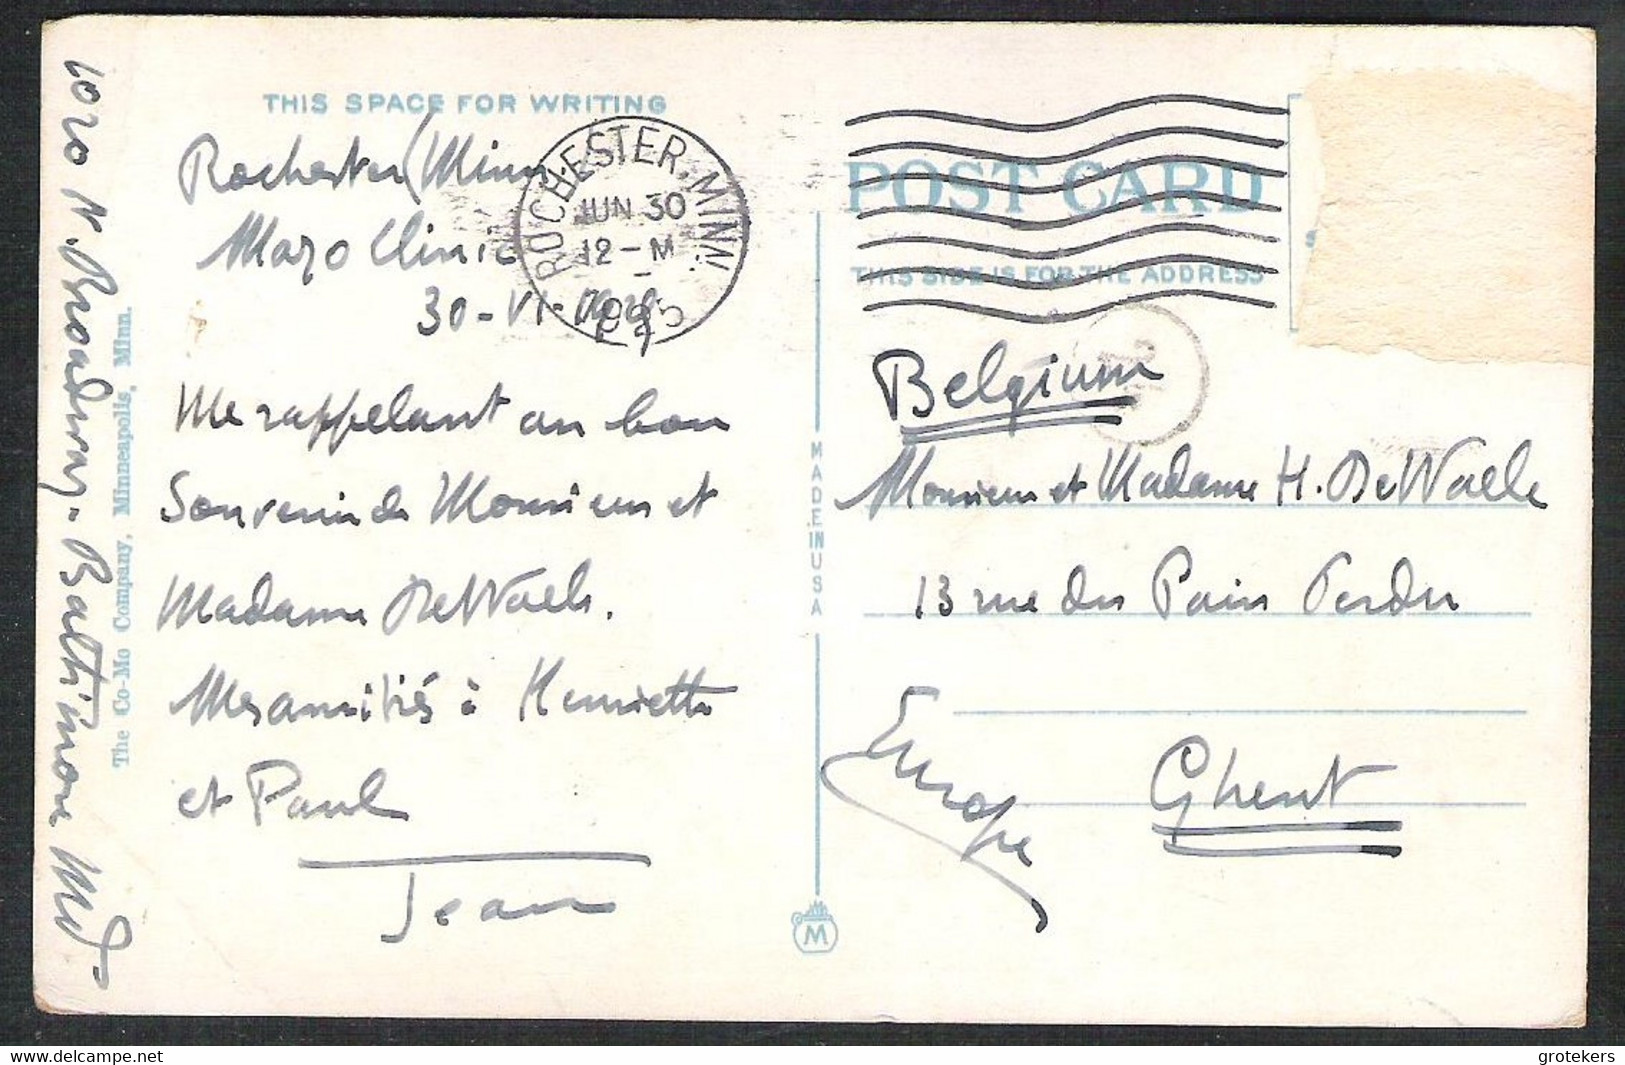 THIS SPACE FOR WRITING
Rochester (Minn
Mayo Clinic
30-VI-1925
Me rappelant au bon
Souvenir de Monsieur et
Madame DeWaele.
Mes amitiés à Henriette
et Paul
Jean
1020 N. Broadway - Baltimore Md-
The Co-Mo Company, Minneapolis, Minn.
ROCHESTER, MINN.
JUN 30
12-M
1925
MADE IN USA
M
POST CARD
THIS SIDE IS FOR THE ADDRESS
Belgium
Monsieur et Madame H. DeWaele
13 rue du Pain Perdu
Ghent
Europe
grotekers
delcampe.net